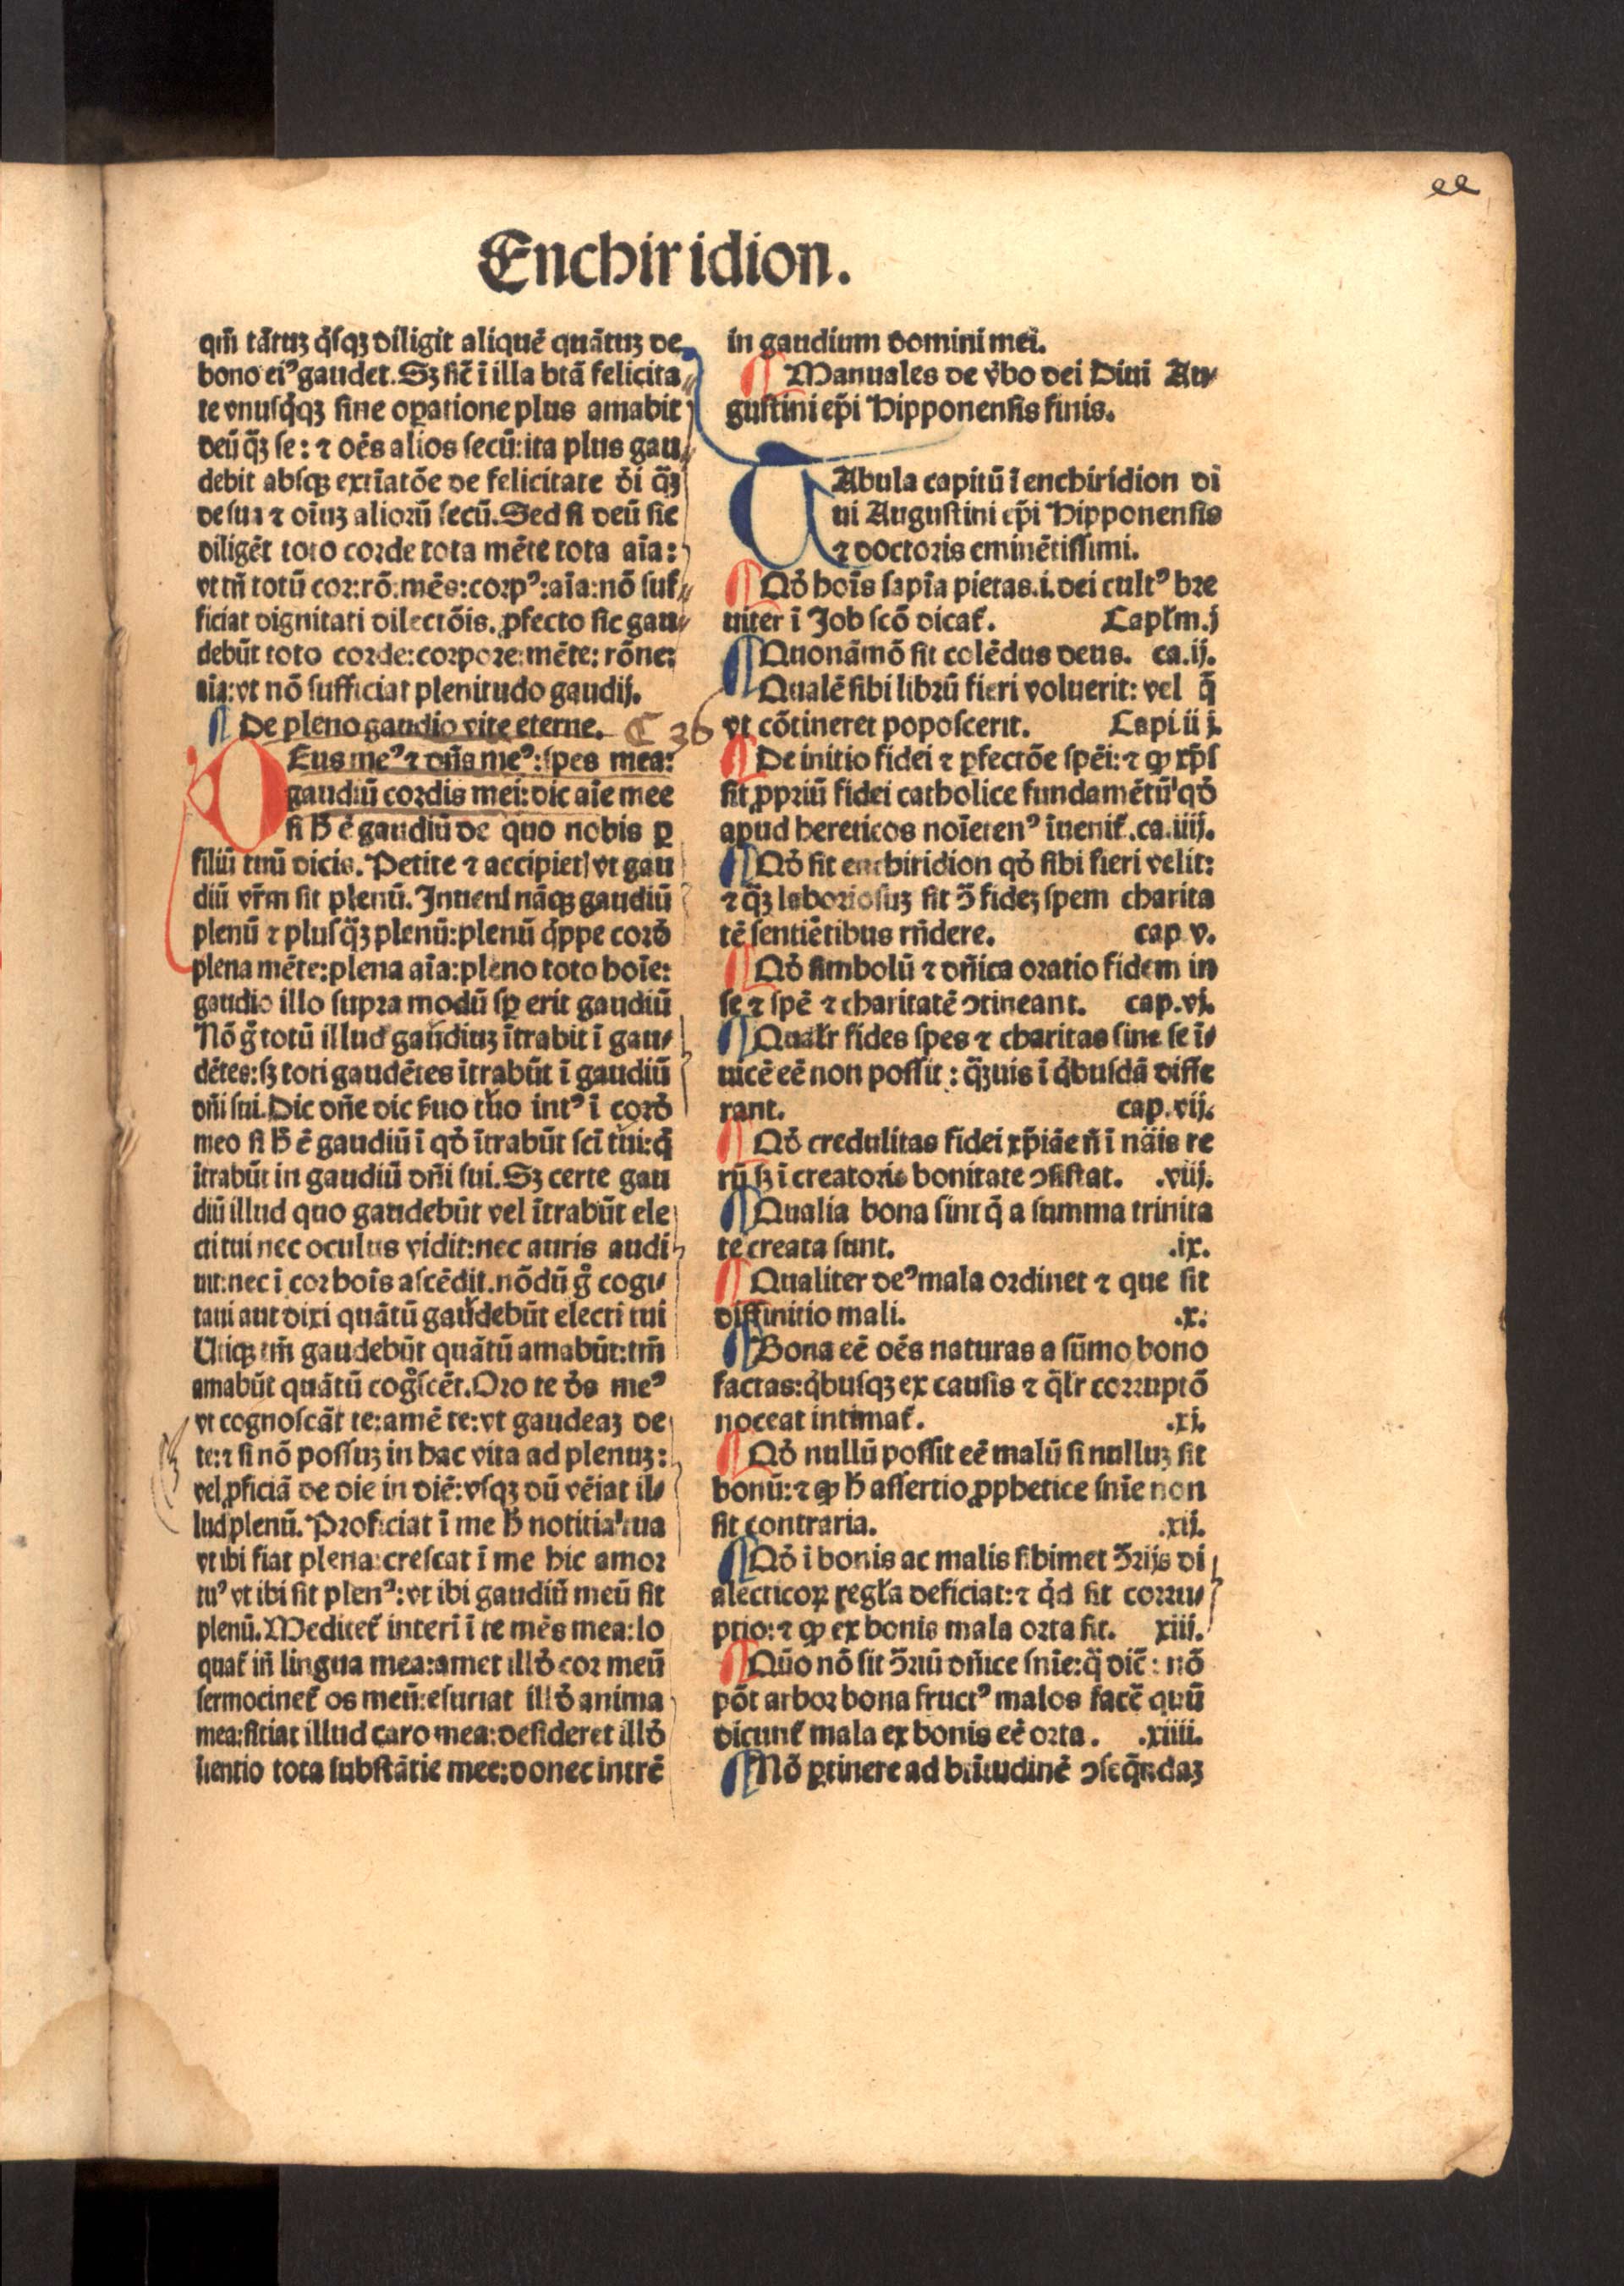 ee
Enchiridion.
qm̄ tātuꝫ q̇ſqꝫ diligit aliquē quātuꝫ de
bono eiꝰ gaudet. Sꝫ ſic̄ ī illa btā felicita
te vnuſq̇qꝫ ſine oꝑatione plus amabit
deū q̄ꝫ ſe: ⁊ oēs alios ſecū: ita plus gau
debit abſqꝫ extīatōe de felicitate di̇ q̄ꝫ
de ſua ⁊ oīuꝫ aliorū ſecū. Sed ſi deū ſic
diligēt toto corde tota mēte tota aīa:
vt tn̄ totū cor: rō: mēs: corpꝰ: aīa: nō ſuf
ficiat dignitati dilectōis. ꝓfecto ſic gau
debūt toto corde: corpore: mēte: rōne:
aīa: vt nō ſufficiat plenitudo gaudij.
¶ De pleno gaudio vite eterne. C 36
DEus meꝰ ⁊ dn̄s meꝰ: ſpes mea:
gaudiū cordis mei: dic aīe mee
ſi ħ ē gaudiū de quo nobis ꝑ
filiū tuū dicis. Petite ⁊ accipietꝭ vt gau
diū vr̄m ſit plenū. Inueni nāqꝫ gaudiū
plenū ⁊ pluſq̄ꝫ plenū: plenū q̇ppe cord̓
plena mēte: plena aīa: pleno toto hoīe:
gaudio illo ſupra modū ſꝑ erit gaudiū
Nō g̊ totū illud gaudiuꝫ ītrabit ī gau
dētes: ſꝫ toti gaudētes ītrabūt ī gaudiū
dn̄i ſui. Dic dn̄e dic ẜuo tuo intꝰ ī cord̓
meo ſi ħ ē gaudiū ī qd̓ ītrabūt ſcī tui: q̇
ītrabūt in gaudiū dn̄i ſui. Sꝫ certe gau
diū illud quo gaudebūt vel ītrabūt ele
cti tui nec oculus vidit: nec auris audi
uit: nec ī cor hoīs aſcēdit. nōdū g̊ cogi
taui aut dixi quātū gaudebūt electi tui
Utiqꝫ tm̄ gaudebūt quātū amabūt: tm̄
amabūt quātū cog̊ſcēt. Oro te d̓s meꝰ
vt cognoſcāt te: amē te: vt gaudeaꝫ de
te: ⁊ ſi nō poſſuꝫ in hac vita ad plenuꝫ:
vel ꝓficiā de die in diē: vſqꝫ dū vēiat il
lud plenū. Proficiat ī me ħ notitia tua
vt ibi fiat plena: creſcat ī me hic amor
tuꝰ vt ibi ſit plenꝰ: vt ibi gaudiū meū ſit
plenū. Meditet̄ interī ī te mēs mea: lo
quat̄ in̄ lingua mea: amet illd̓ cor meū
ſermocinet̄ os meū: eſuriat illd̓ anima
mea: ſitiat illud caro mea: deſideret illd̓
ſientio tota ſubſtātie mee: donec intrē
in gaudium domini mei.
¶ Manuales de v̓bo dei Diui Au
guſtini ep̄i Hipponenſis finis.
TAbula capitū ī enchiridion di
ui Auguſtini ep̄i Hipponenſis
⁊ doctoris eminētiſſimi.
¶ Qd̓ hoīs ſapīa pietas. i. dei cultꝰ bre
uiter ī Job ſcō dicat̄. Capl̄m. j
¶ Quonāmō ſit colēdus deus. ca. ij.
¶ Qualē ſibi librū fieri voluerit: vel q̄
vt cōtineret popoſcerit. Capi iij.
¶ De initio fidei ⁊ ꝑfectōe ſpēi: ⁊ ꝙ xp̄s
ſit ꝓpriū fidei catholice fundamētū: qd̓
apud hereticos noīetenꝰ īuenit̄. ca. iiij.
¶ Qd̓ ſit enchiridion qd̓ ſibi fieri velit:
⁊ q̄ꝫ laborioſuꝫ ſit ꝯ̄ fideꝫ ſpem charita
tē ſentiētibus rn̄dere. cap v.
¶ Qd̓ ſimbolū ⁊ dn̄ica oratio fidem in
ſe ⁊ ſpē ⁊ charitatē ꝯtineant. cap. vj.
¶ Qualr̄ fides ſpes ⁊ charitas ſine ſe ī
uicē eē non poſſit: q̄ꝫuis ī q̇buſdā diffe
rant. cap. vij.
¶ Qd̓ credulitas fidei xp̄iāe n̄ ī nāis re
rū ſꝫ ī creatoris bonitate ꝯſiſtat. .viij.
¶ Qualia bona ſint q̄ a ſumma trinita
te creata ſunt. .ix.
¶ Qualiter deꝰ mala ordinet ⁊ que ſit
diffinitio mali. .x.
¶ Bona eē oēs naturas a ſūmo bono
factas: q̇buſqꝫ ex cauſis ⁊ q̄lr̄ corruptō
noceat intimat̄. .xj.
¶ Qd̓ nullū poſſit eē malū ſi nulluꝫ ſit
bonū: ⁊ ꝙ ħ aſſertio ꝓphetice ſnīe non
ſit contraria. .xij.
¶ Qd̓ ī bonis ac malis ſibimet ꝯ̄rijs di
alecticoꝝ regl̄a deficiat: ⁊ q̇d ſit corru
ptio: ⁊ ꝙ ex bonis mala orta ſit. xiij.
¶ Qūo nō ſit ꝯ̄riū dn̄ice ſnīe: q̄ dic̄: nō
pōt arbor bona fructꝰ malos facē quū
dicunt̄ mala ex bonis eē orta. .xiiij.
¶ Nō ꝑtinere ad btītudinē ꝯſeq̄ndaꝫ